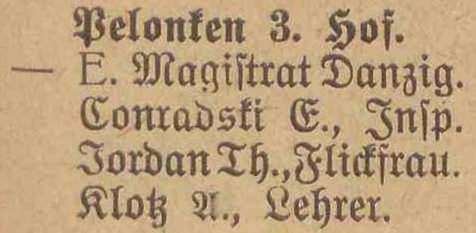 Pelonken 3. Hof.
— E. Magiſtrat Danzig.
Conradski E., Inſp.
Jordan Th., Flickfrau.
Klotz A., Lehrer.